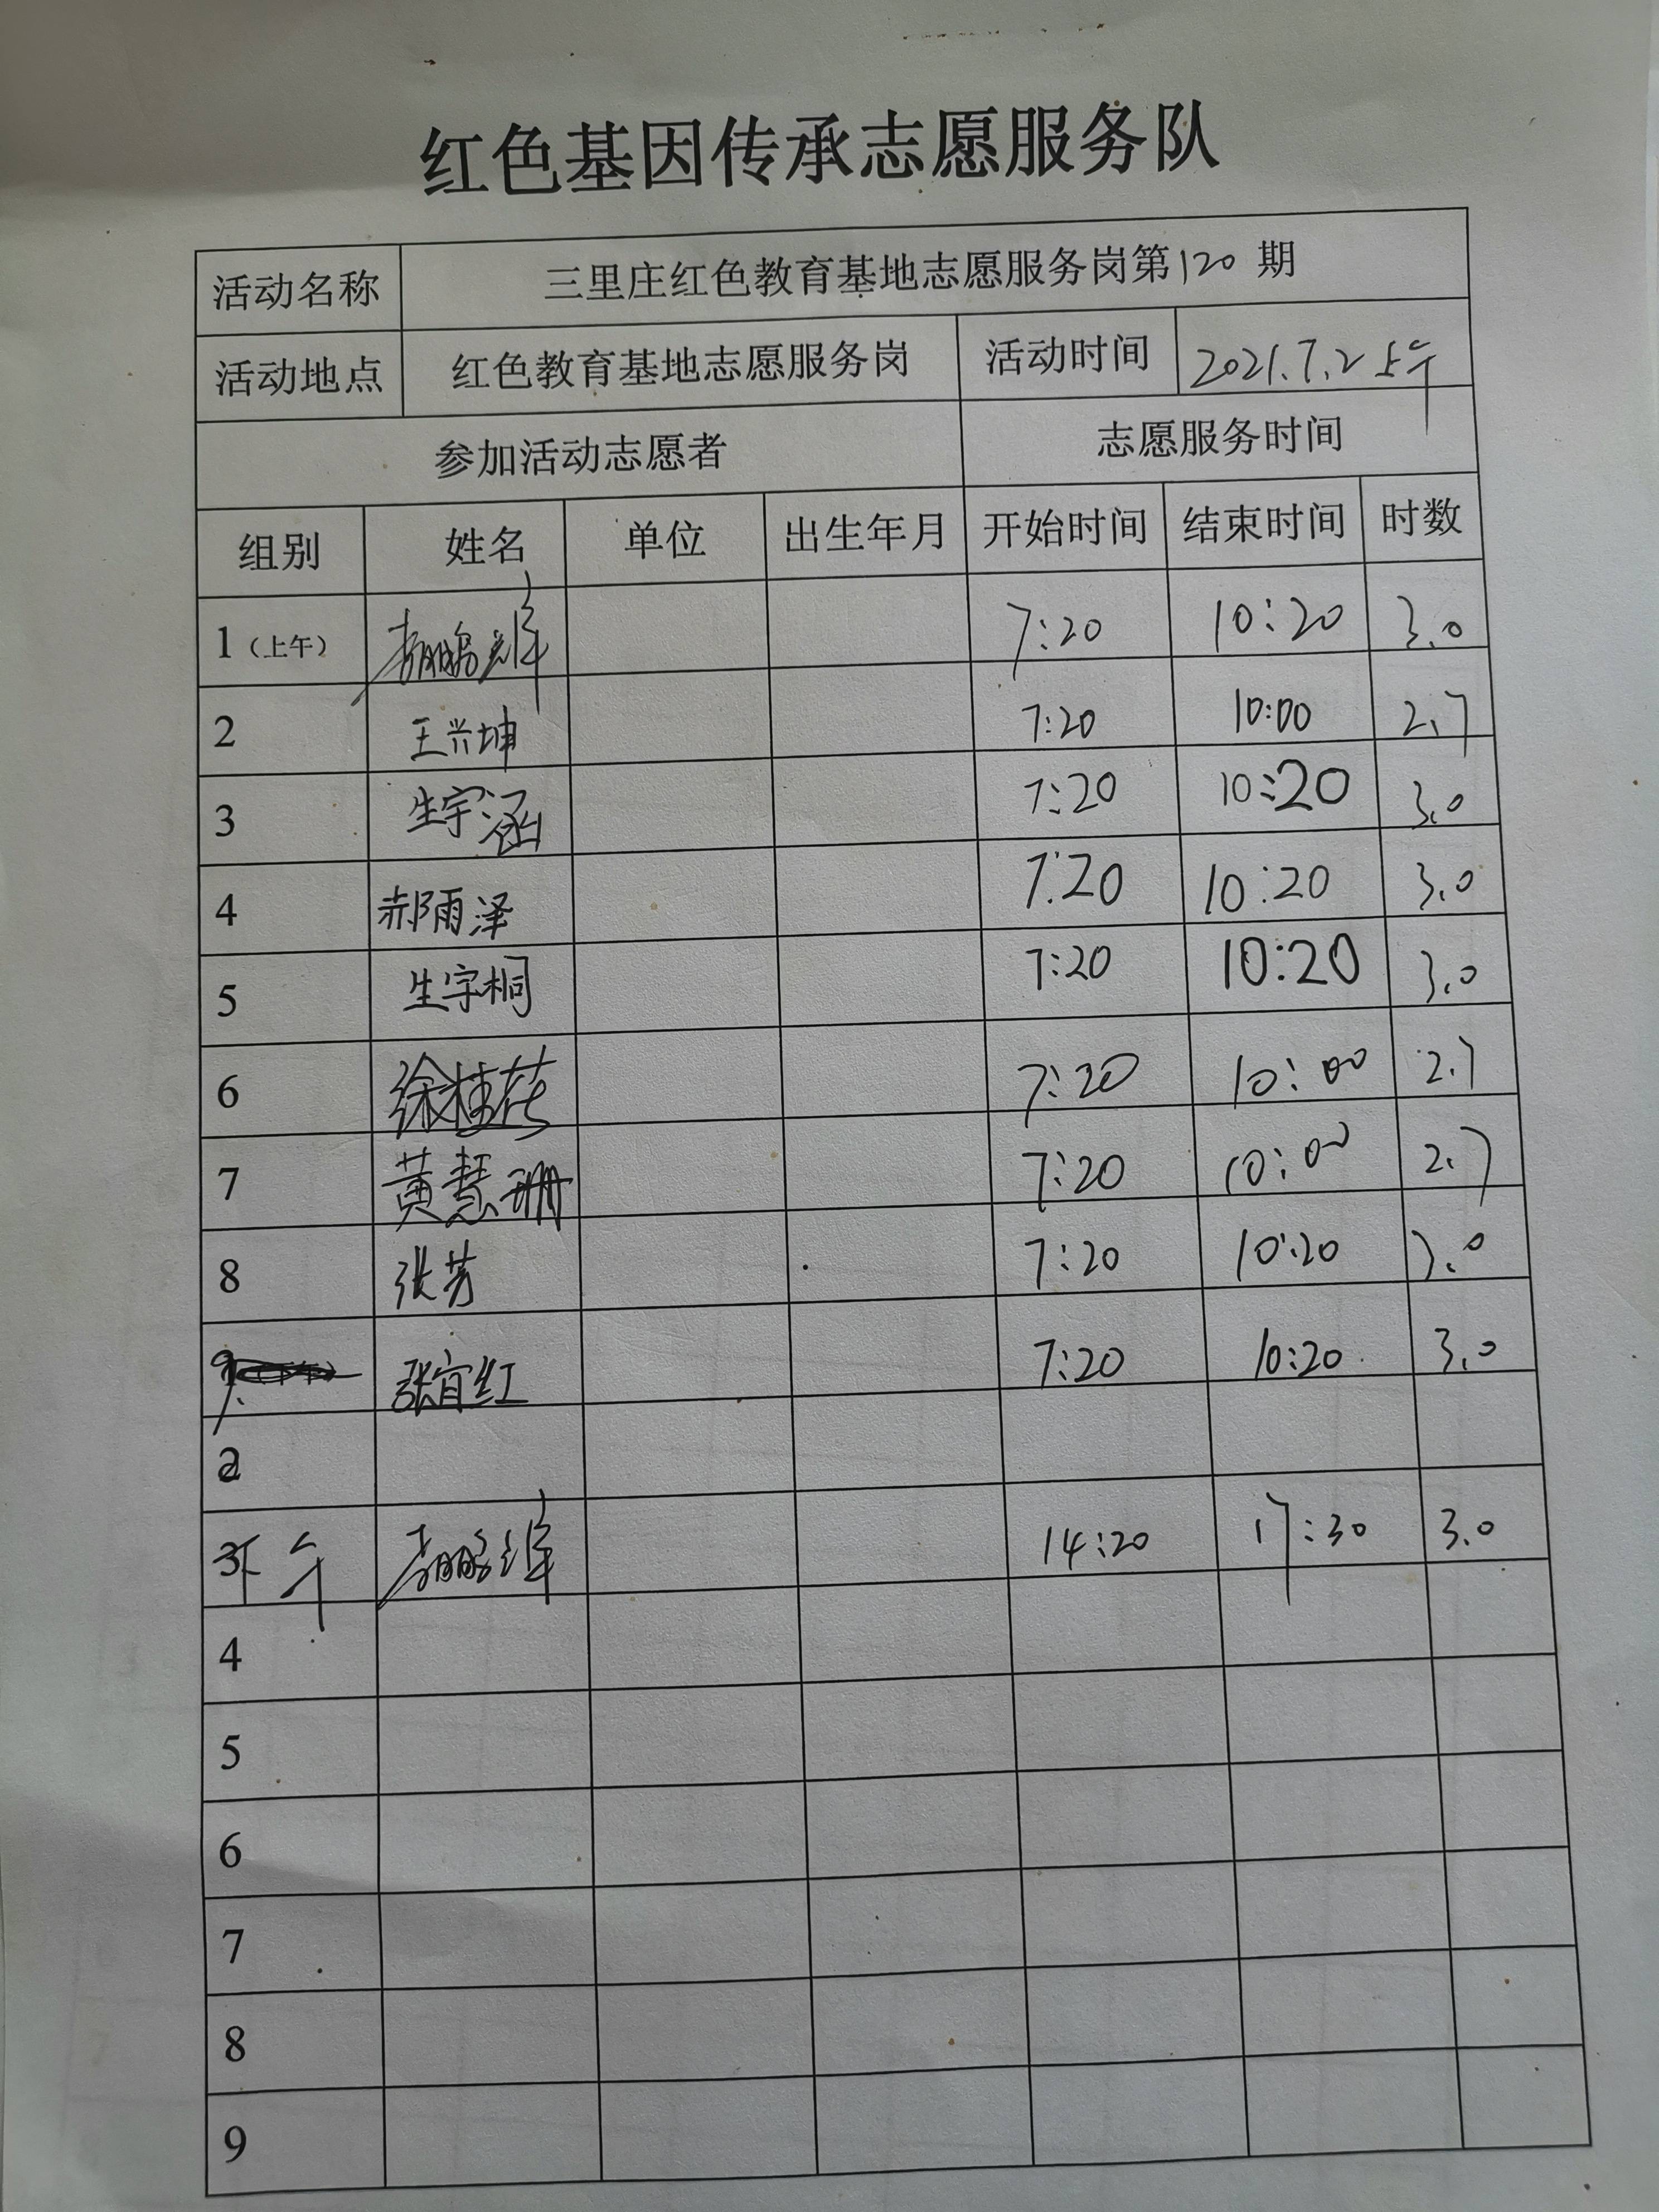 红色基因传承志愿服务队
活动名称 三里庄红色教育基地志愿服务岗第120期
活动地点 红色教育基地志愿服务岗 活动时间 2021.7.2上午
参加活动志愿者 志愿服务时间
组别 姓名 单位 出生年月 开始时间 结束时间 时数
1（上午） 7:20 10:20 3.0
2 王兴坤 7:20 10:00 2.7
3 生宇涵 7:20 10:20 3.0
4 郝雨泽 7:20 10:20 3.0
5 生宇桐 7:20 10:20 3.0
6 徐桂花 7:20 10:00 2.7
7 黄慧珊 7:20 10:00 2.7
8 张芳 7:20 10:20 3.0
9. 张宜红 7:20 10:20 3.0
2
下午 14:20 17:30 3.0
4
5
6
7
8
9